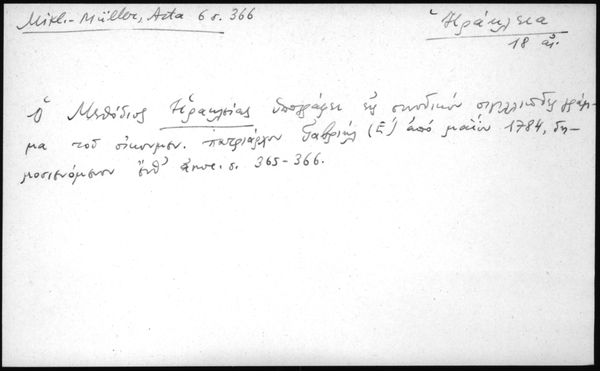 Mikl.-Müller, Acta 6 σ. 366
Ἡράκλεια
18 αἰ.
Ὁ Μεθόδιος Ἡρακλείας ὑπογράφει εἰς συνοδικὸν σιγιλλιῶδες γράμ-
μα τοῦ οἰκουμεν. πατριάρχου Γαβριὴλ (Ε´) ἀπὸ μαΐου 1784, δη-
μοσιευόμενον ἔνθ᾽ ἀνωτ. σ. 365-366.